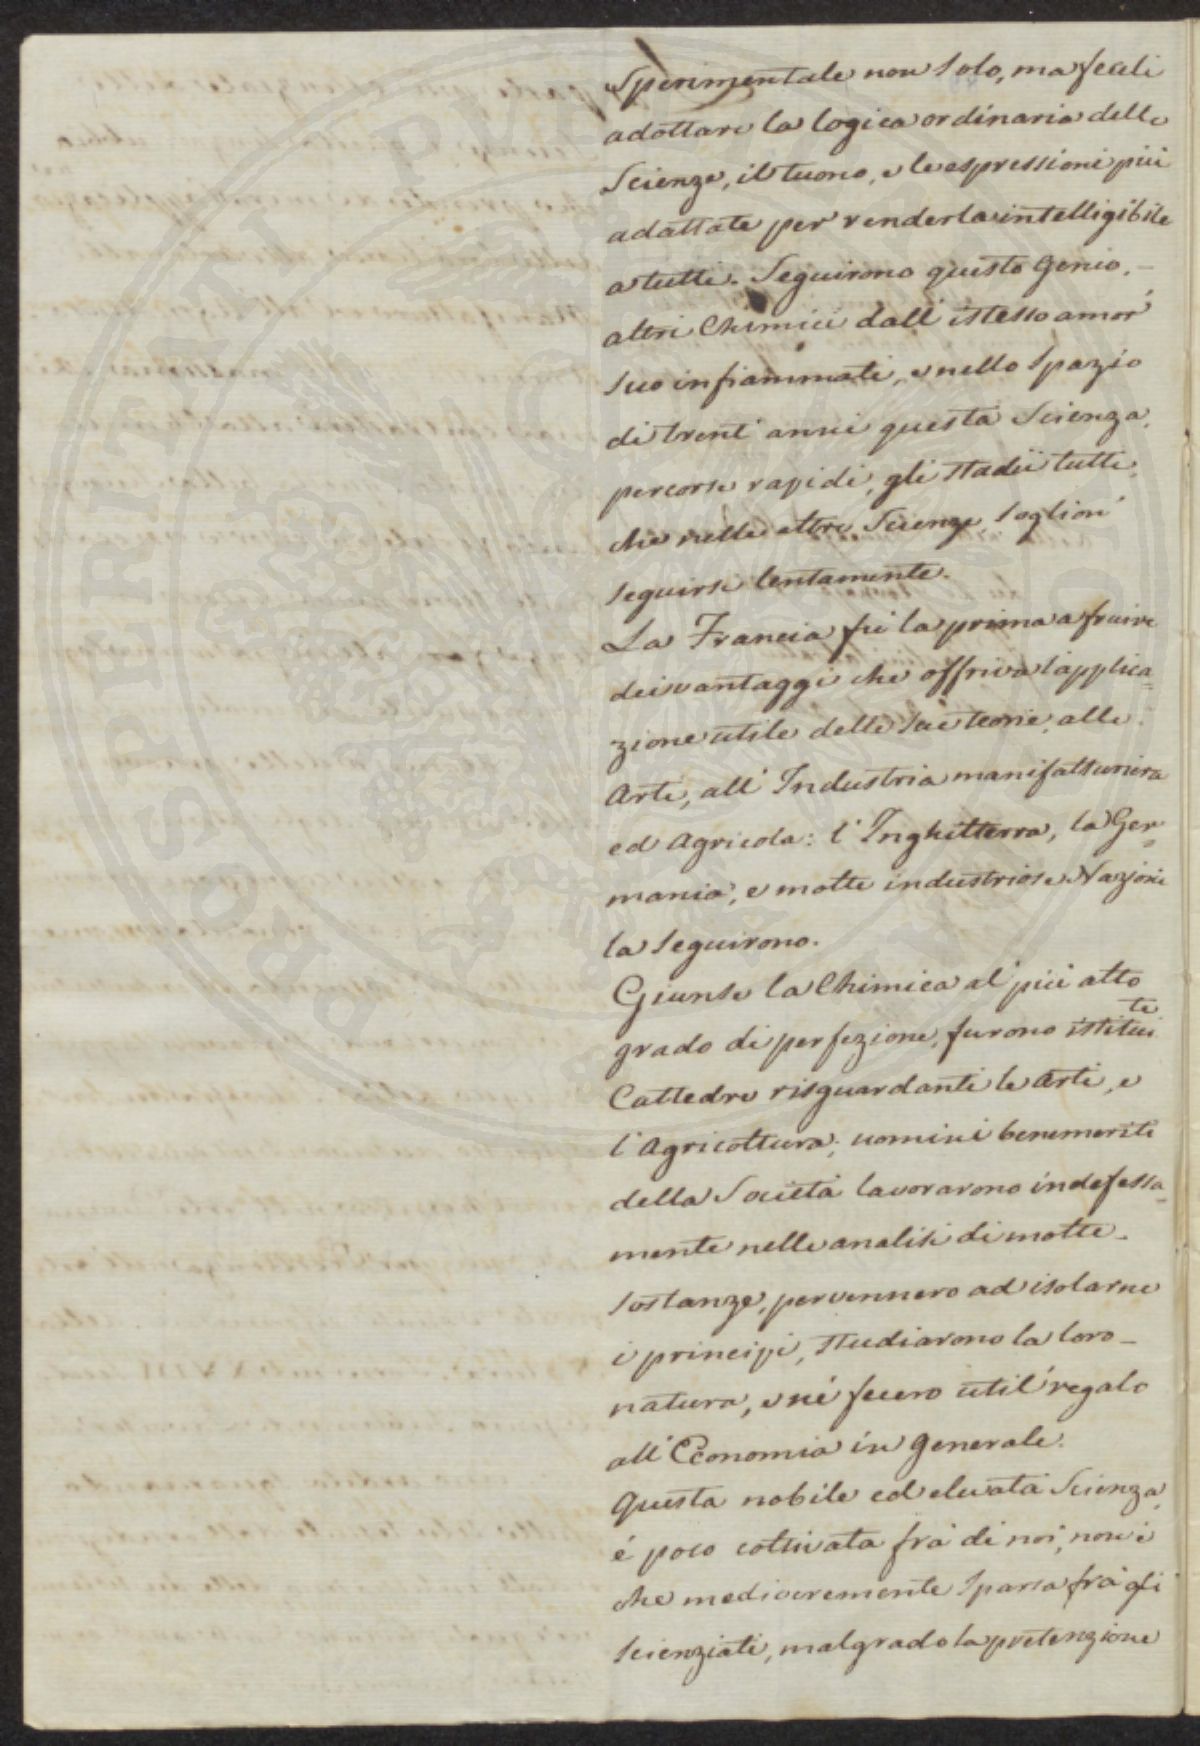 Sperimentale non solo, ma feceli
adottare la logica ordinaria delle
Scienze, il tuono, e le espressioni più
adattate per renderla intelligibile
a tutti. Seguirono questo Genio,
altri Chimici dall' istesso amor
suo infiammati, e nello spazio
di trent' anni questa Scienza,
percorse rapidi, gli stadii tutti,
che nelle altre Scienze soglion'
seguirsi lentamente.
La Francia fù la prima a fruire
dei vantaggi che offriva l'applica=
zione utile delle sue teorie, alle
Arti, all' Industria manifatturiera
ed Agricola: l' Inghilterra, la Ger=
mania, e molte industriose Nazioni
la seguirono.
Giunse la Chimica al più alto
grado di perfezione, furono istitui
te
Cattedre risguardanti le Arti, e
l' Agricoltura; uomini benemeriti
della Società lavorarono indefessa=
mente nelle analisi di molte
sostanze, pervennero ad isolarne
i principj, studiarono la loro
natura, e né fecero util' regalo
all' Economia in Generale.
Questa nobile ed elevata Scienza,
é poco coltivata frà di noi, non é
che mediocremente sparsa frà gli
scienziati, malgrado la pretenzione
PROSPERITATI PVBLICAE AVGENDAE